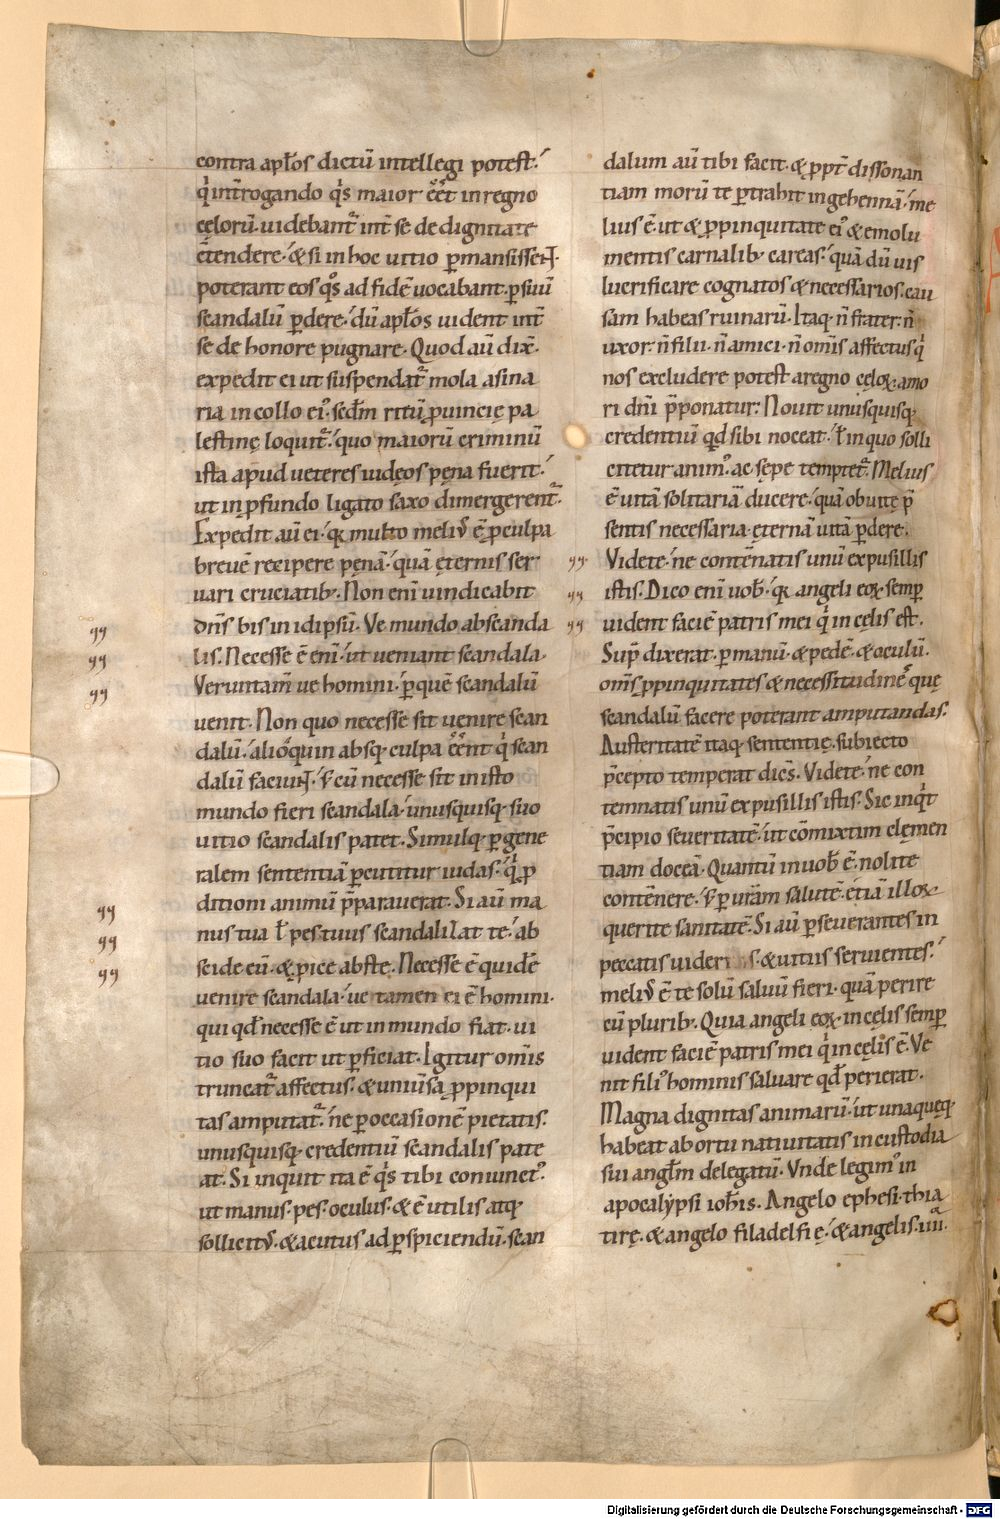 contra apłos dictū intellegi potest.
q̇ int̄rogando q̇s maior eēt in regno
cęlorū. uidebant᷑ int̄ se de dignitate
c̄tendere. & si in hoc uitio p̱mansissent.
poterant eos q̇s ad fidē uocabant. p̱ suū
scandalū p̱dere. dū apłos uident int̄
se de honore pugnare. Quod aū dix̄.
expedit ei ut suspendat᷑ mola asina
ria in collo ei᾽. scđm ritū ꝓuincię pa
lestinę loquit᷑. quo maiorū criminū
ista apud ueteres iudęos pęna fuerit.
ut in ꝓfundo ligato saxo dimergerent᷑.
Expedit aū ei. qꝛ multo meli᾽ ē ꝓ culpa
breuē recipere pęnā. quā ęternis ser
uari cruciatib;. Non enī uindicabit
dn̄s bis in idipsū. Ve mundo ab scanda
lis. Necesse ē enī. ut ueniant scandala.
Verumtam̄ ue homini. ꝑ quē scandalū
uenit. Non quo necesse sit uenire scan
dalū. alioquin absq; culpa eēnt q̇ scan
dalū faciunt. s; cū necesse sit in isto
mundo fieri scandala. unusquisq; suo
uitio scandalis patet. Simulq; ꝑ gene
ralem sententiā ꝑcutitur iudas. q̇ ꝑ
ditioni animū p̄parauerat. Si aū ma
nus tua ł pes tuus scandalizat te. ab
scide eū. & ꝓice abs te. Necesse ē quidē
uenire scandala. ue tamen ei ē homini.
qui qđ necesse ē ut in mundo fiat. ui
tio suo facit ut ꝑ se fiat. Igitur om̄is
truncat᷑ affectus. & uniu᾽sa ꝓpinqui
tas amputat᷑. ne ꝑ occasionē pietatis.
unusquisq; credentiū scandalis pate
at. Si inquit ita ē q̇s tibi coniunct᾽.
ut manus. pes. oculus. & ē utilis atq;
sollicit᾽. & acutus ad ꝑspiciendū. scan
dalum aū tibi facit. & ꝓpt̄ dissonan
tiam morū te ꝑtrahit in gehennā. me
lius ē. ut & ꝓpinquitate ei᾽ & emolu
mentis carnalib; careas. quā dū uis
lucrificare cognatos & necessarios. cau
sam habeas ruinarū. Itaq; n̄ frater. n̄
uxor. n̄ filii. n̄ amici. n̄ om̄is affectus q̇
nos excludere potest a regno cęloꝝ. amo
ri dn̄i p̄ponatur. Nouit unusquisq;
credentiū qđ sibi noceat. ł in quo solli
citetur anim᾽. ac sępe temptet᷑. Melius
ē uitā solitariā ducere. quā ob uitę p̄
sentis necessaria. ęternā uitā ꝑdere.
Videte. ne contēnatis unū ex pusillis
istis. Dico enī uob̄. qꝛ angeli eoꝝ semꝑ
uident faciē patris mei q̇ in cęlis est.
Sup̄ dixerat. ꝑ manū. & pedē. & oculū.
om̄s ꝓpinquitates & necessitudines quę
scandalū facere poterant amputandas.
Austeritatē itaq; sententię. subiecto
p̄cepto temperat dicēs. Videte. ne con
temnatis unū ex pusillis istis. Sic inq̇t
p̄cipio seueritatē. ut cōmixtim clęmen
tiam doceā. Quantū in uob̄ ē. nolite
contēnere. s; ꝑ uram̄ salutē. etiā illoꝝ
querite sanitatē. Si aū ꝑseuerantes in
peccatis uideri s. & uitiis seruientes.
meli᾽ ē te solū saluū fieri. quā perire
cū plurib;. Quia angeli eoꝝ. in cęlis semꝑ
uident faciē patris mei q̇ in cęlis ē. Ve
nit fili᾽ hominis saluare qđ perierat.
Magna dignitas animarū. ut unaquęq;
habeat ab ortu natiuitatis in custodia
sui anglm̄ delegatū. Vnde legim᾽ in
apocalypsi ioh̄is. Angelo ephesi. thia
tirę. & angelo filadelfię. & angelis. iiii.
Digitalisierung gefördert durch die Deutsche Forschungsgemeinschaft - DFG